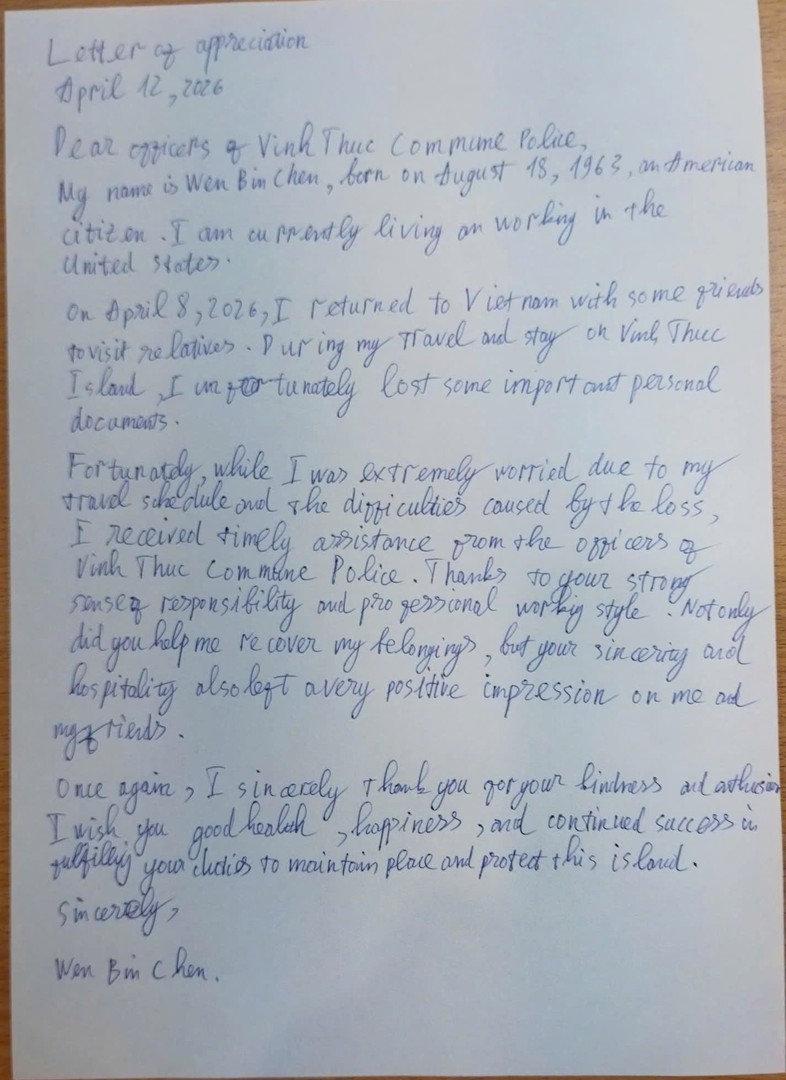 Letter of appreciation
April 12, 2026
Dear officers of Vinh Thuc Commune Police,
My name is Wen Bin Chen, born on August 18, 1963, an American
citizen. I am currently living an working in the
United States.
On April 8, 2026, I returned to Vietnam with some friends
to visit relatives. During my travel and stay on Vinh Thuc
Island, I unfortunately lost some important personal
documents.
Fortunately, while I was extremely worried due to my
travel schedule and the difficulties caused by the loss,
I received timely assistance from the officers of
Vinh Thuc Commune Police. Thanks to your strong
sense of responsibility and professional working style. Not only
did you help me recover my belongings, but your sincerity and
hospitality also left a very positive impression on me and
my friends.
Once again, I sincerely thank you for your kindness and
I wish you good health, happiness, and continued success in
fulfilling your duties to maintain place and protect this island.
Sincerely,
Wen Bin Chen.